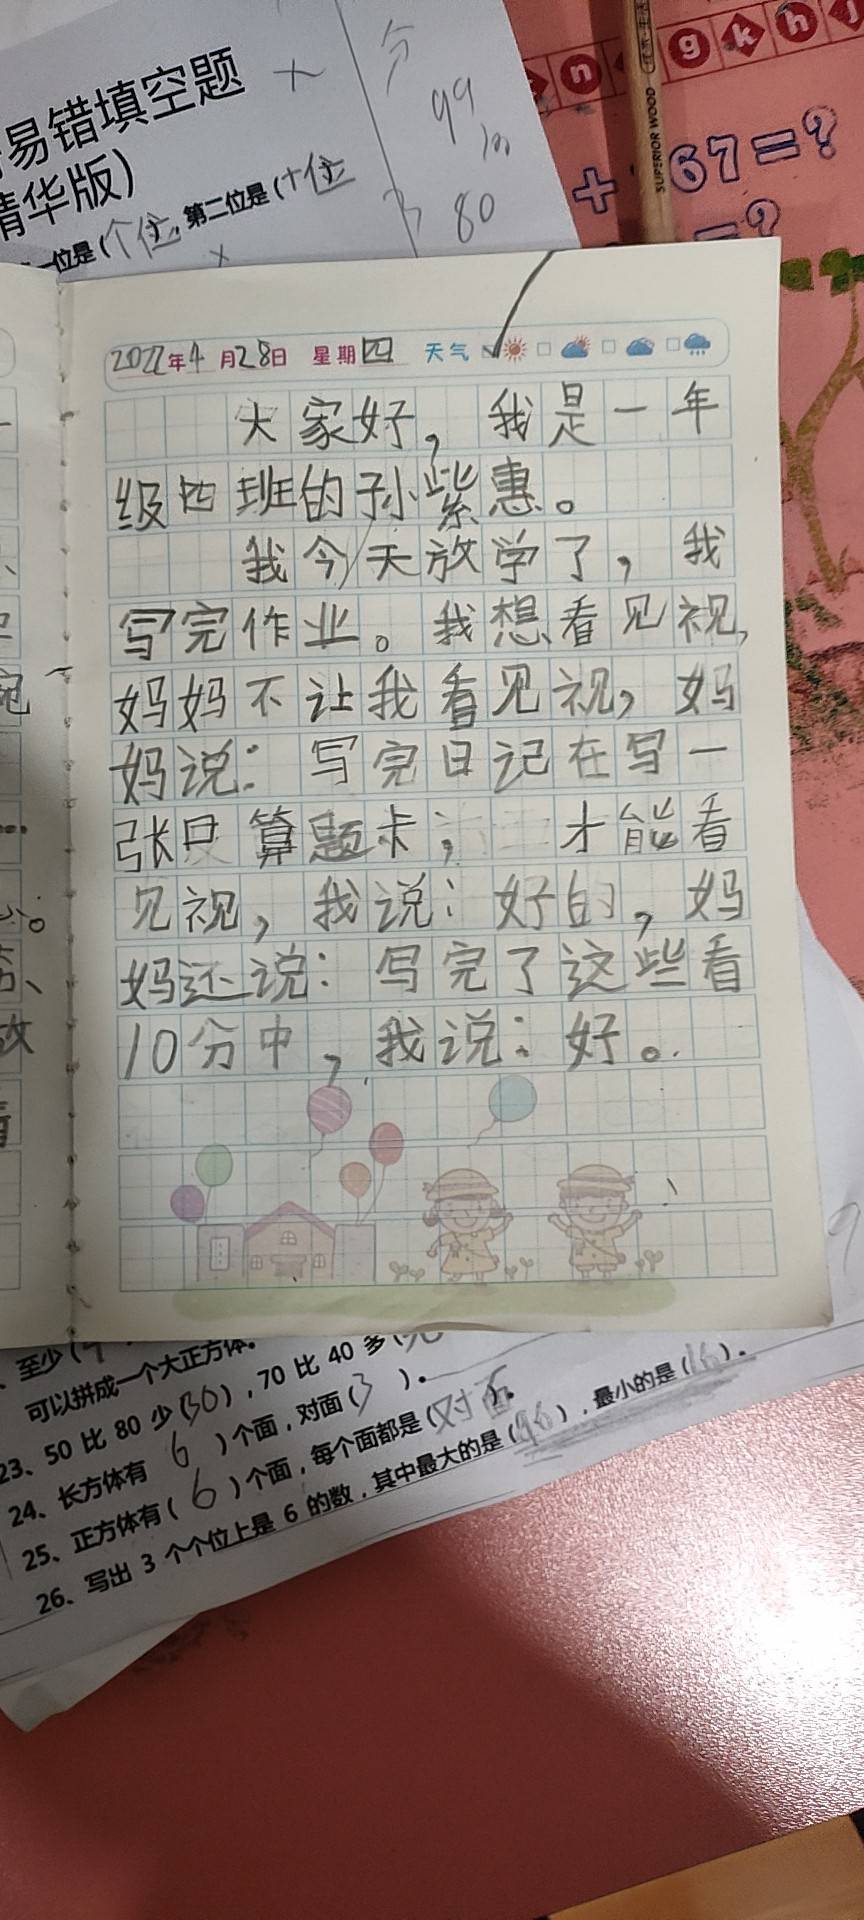 易错填空题
精华版）
一位是（个位，第二位是（十位
分
99
100
80
n g k h
SUPERIOR WOOD
+ 67=?
=?
2022年4月28日 星期四 天气
大家好，我是一年
级四班的孙紫惠。
我今天放学了，我
写完作业。我想看见视，
妈妈不让我看见视，妈
妈说：写完日记在写一
张口算题卡；才能看
见视，我说：好的，妈
妈还说：写完了这些看
10分中，我说：好。
至少（
可以拼成一个大正方体。
23、50 比 80 少（30），70 比 40 多（
24、长方体有 6 ）个面，对面（3 ）。
25、正方体有（6 ）个面，每个面都是（对面）。
26、写出 3 个个位上是 6 的数，其中最大的是（96），最小的是（16）。